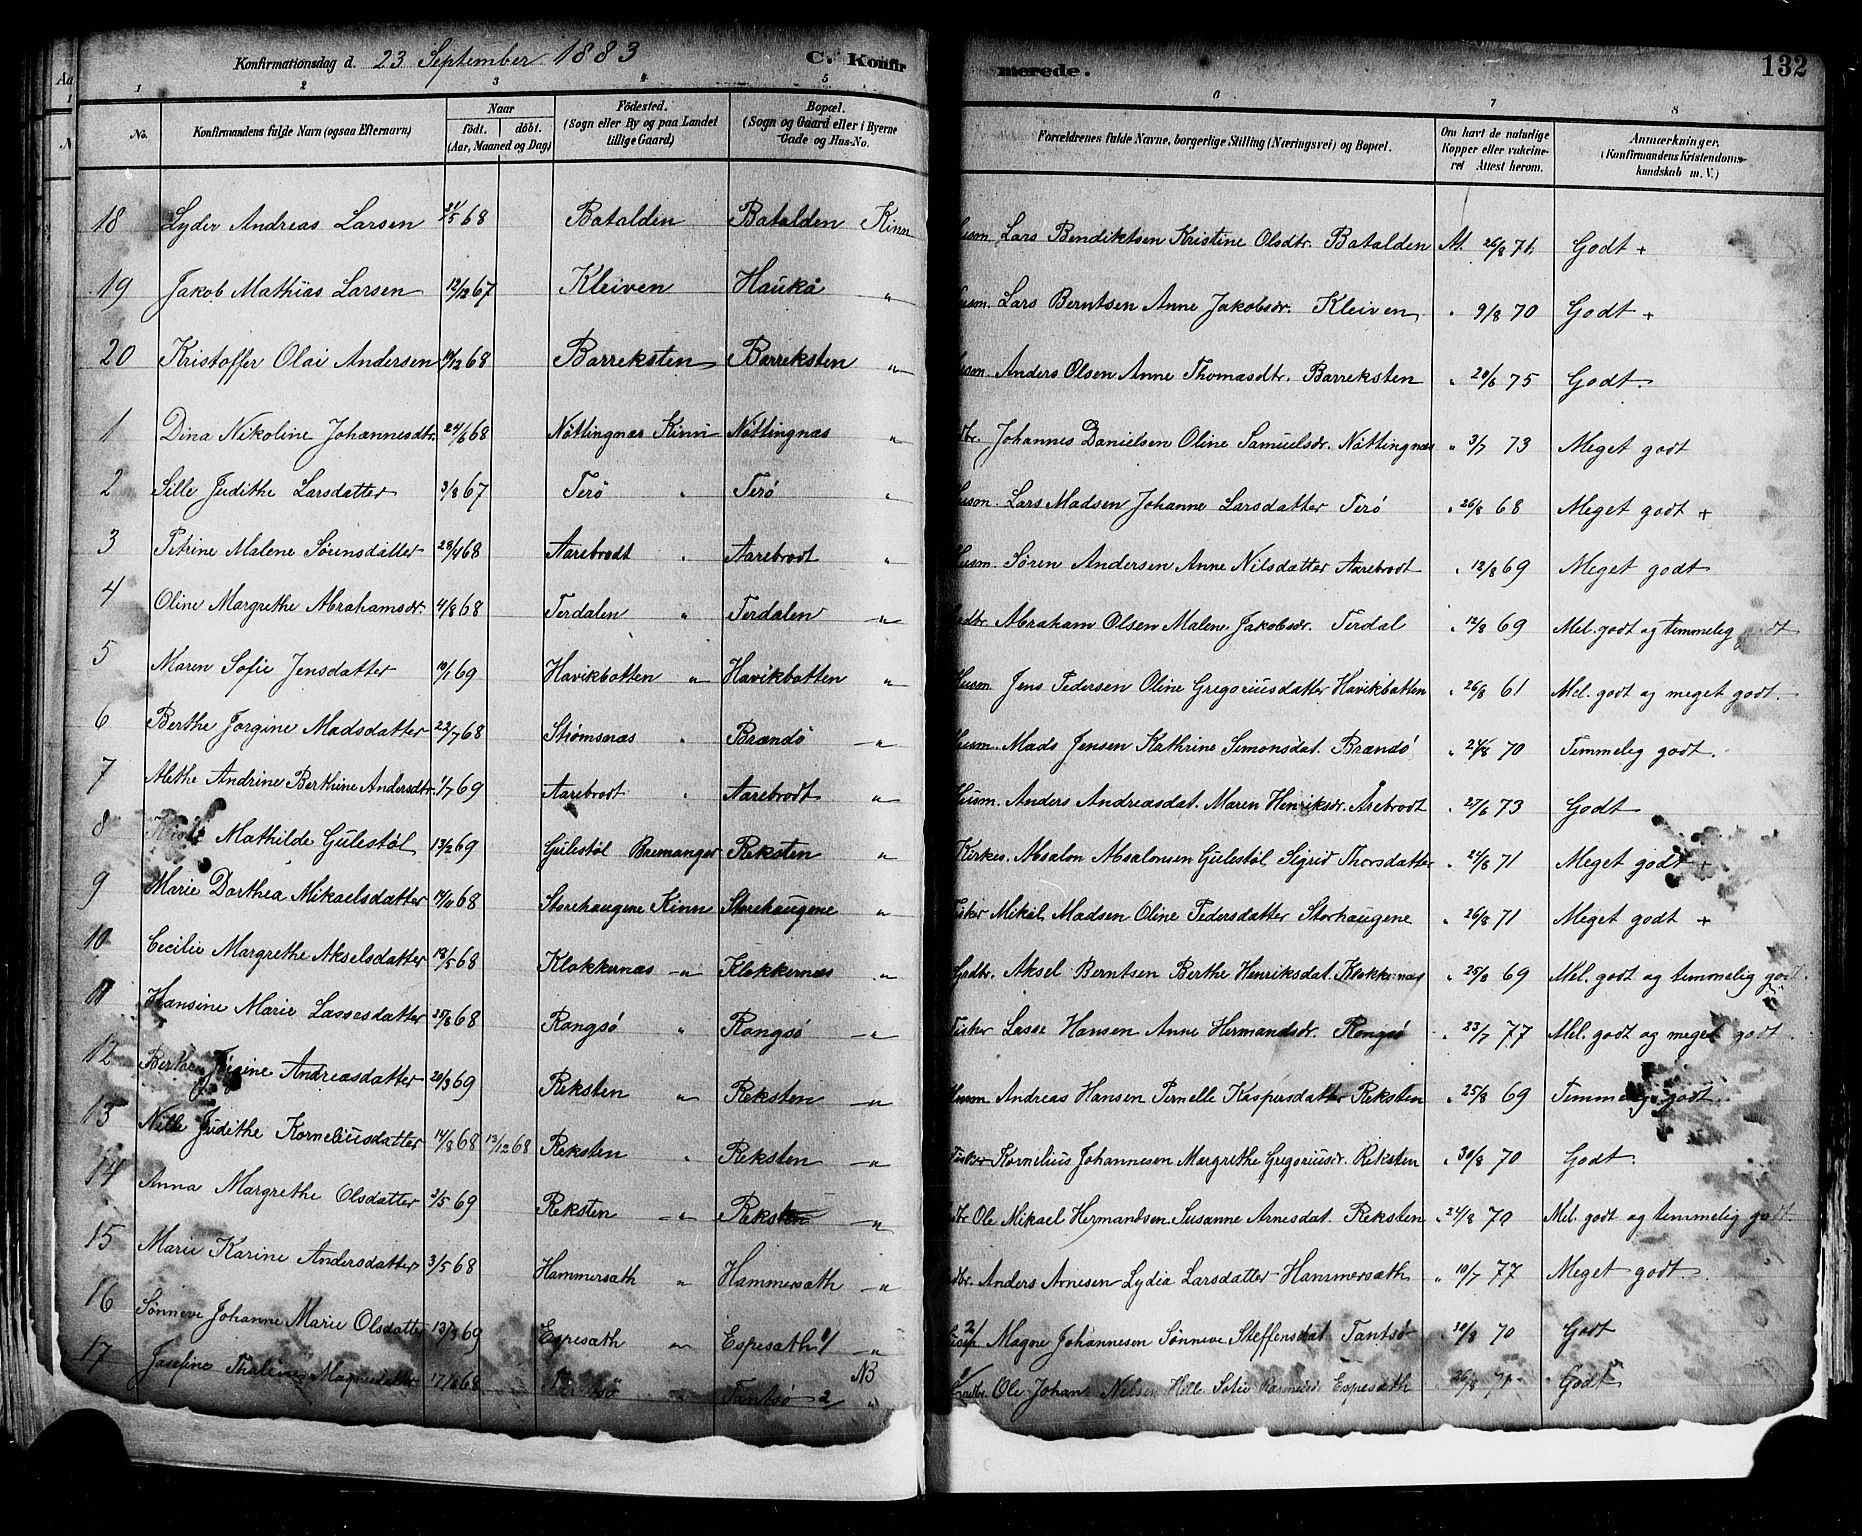 Konfirmationsdag d. 23 September 1883 C. Konfirmerede. 132
1 2 3 4 5 6 7 8
No. Konfirmandens fulde Navn (ogsaa Efternavn) Naar födt. döbt. (Aar, Maaned og Dag) Födested. (Sogn eller By og paa Landet tillige Gaard) Bopæl. (Sogn og Gaard eller i Byerne Gade og Hus-No. Forældrenes fulde Navne, borgerlige Stilling (Næringsvei) og Bopæl. Om havt de naturlige Kopper eller vakcineret Attest herom. Anmærkninger. (Konfirmandens Kristendomskundskab m. V.)
18 Lyder Andreas Larsen 21/5 68 Batalden Batalden Kinn Husm. Lars Bendiktsen Kristine Olsdtr. Batalden At. 26/8 71 Godt +
19 Jakob Mathias Larsen 12/12 67 Kleiven Haukå " Husm. Lars Berntsen Anne Jakobsdr. Kleiven " 9/8 70 Godt +
20 Kristoffer Olai Andersen /12 68 Barreksten Barreksten " Husm. Anders Olsen Anne Thomasdtr. Barreksten " 20/6 75 Godt.
1 Dina Nikoline Johannesdtr. 24/6 68 Nöttingnæs Kinn Nöttingnæs " Johannes Danielsen Oline Samuelsdr. Nöttingnæs " 3/7 73 Meget godt
2 Sille Judithe Larsdatter 3/8 67 Terö " Terö " Husm. Lars Madsen Johanne Larsdatter Terö " 26/8 68 Meget godt +
3 Petrine Malene Sörensdatter 28/4 68 Aarebrodt " Aarebrodt " Husm. Sören Andersen Anne Nilsdatter Aarebrodt " 12/8 69 Meget godt
4 Oline Margrethe Abrahamsdr. 4/8 68 Terdalen " Terdalen " Abraham Olsen Malene Jakobsdr. Terdal " 12/8 69 Mel. godt og temmelig godt
5 Maren Sofie Jensdatter 10/1 69 Havikbotten " Havikbotten " Husm. Jens Pedersen Oline Gregoriusdatter Havikbotten " 26/8 61 Mel. godt og meget godt.
6 Berthe Jorgine Madsdatter 22/7 68 Strömsnæs " Brandö " Husm. Mads Jensen Kathrine Simonsdat. Brandö " 24/8 70 Temmelig godt.
7 Alethe Andrine Berthine Andersdtr. 1/7 69 Aarebrodt " Aarebrodt " Husm. Anders Andreasdat. Maren Henriksdr. Årebrodt " 27/6 73 Godt
8 Mathilde Gulestöl 13/2 69 Gulestöl Bremanger Reksten " Kirkes. Absalon Absalonsen Gulestöl Sigrid Thorsdatter " 24/8 71 Meget godt +
9 Marie Dorthea Mikaelsdatter 14/11 68 Storehaugene Kinn Storehaugene " Fisker Mikal Madsen Oline Pedersdatter Storhaugene " 26/8 71 Meget godt +
10 Cecilie Margrethe Akselsdatter 18/5 68 Klokkernæs " Klokkernæs " Grdbr. Aksel Berntsen Berthe Henriksdat. Klokkernæs " 25/8 69 Mel. godt og temmelig godt.
11 Hansine Marie Lassesdatter 25/8 68 Rongsö " Rongsö " Fisker Lasse Hansen Anne Hermandsdr. Rongsö " 23/7 77 Mel. godt og meget godt.
12 Berthe Jörgine Andreasdatter 20/3 69 Reksten " Reksten " Husm Andreas Hansen Pernelle Kaspersdatter Reksten " 25/8 69 Temmelig godt.
13 Nille Judithe Korneliusdatter 14/8 68 13/12 68 Reksten " Reksten " Fisker Kornelius Johannesen Margrethe Gregoriusdr. Reksten " 30/8 70 Godt.
14 Anna Margrethe Olsdatter 2/5 69 Reksten " Reksten " Ole Mikael Hermandsen Susanne Arnesdat. Reksten " 24/8 70 Mel. godt og temmelig godt.
15 Marie Karine Andersdatter 3/5 68 Hammersæth " Hammersæth " Anders Arnesen Lydia Larsdatter Hammersæth " 10/7 77 Meget godt.
16 Sönneve Johanne Marie Olsdatter 13/3 69 Espesæth " Espesæth 1/ " 2/ Magne Johannesen Sönneve Steffensdat Tantsö " 30/8 70 Godt
17 Josefine Thaline Magnesdatter 17/ 68 " Tantsö 2 NB " 1/ Grdbr. Ole Johan Nilsen Sofie Espesæth 26/8 71 Godt